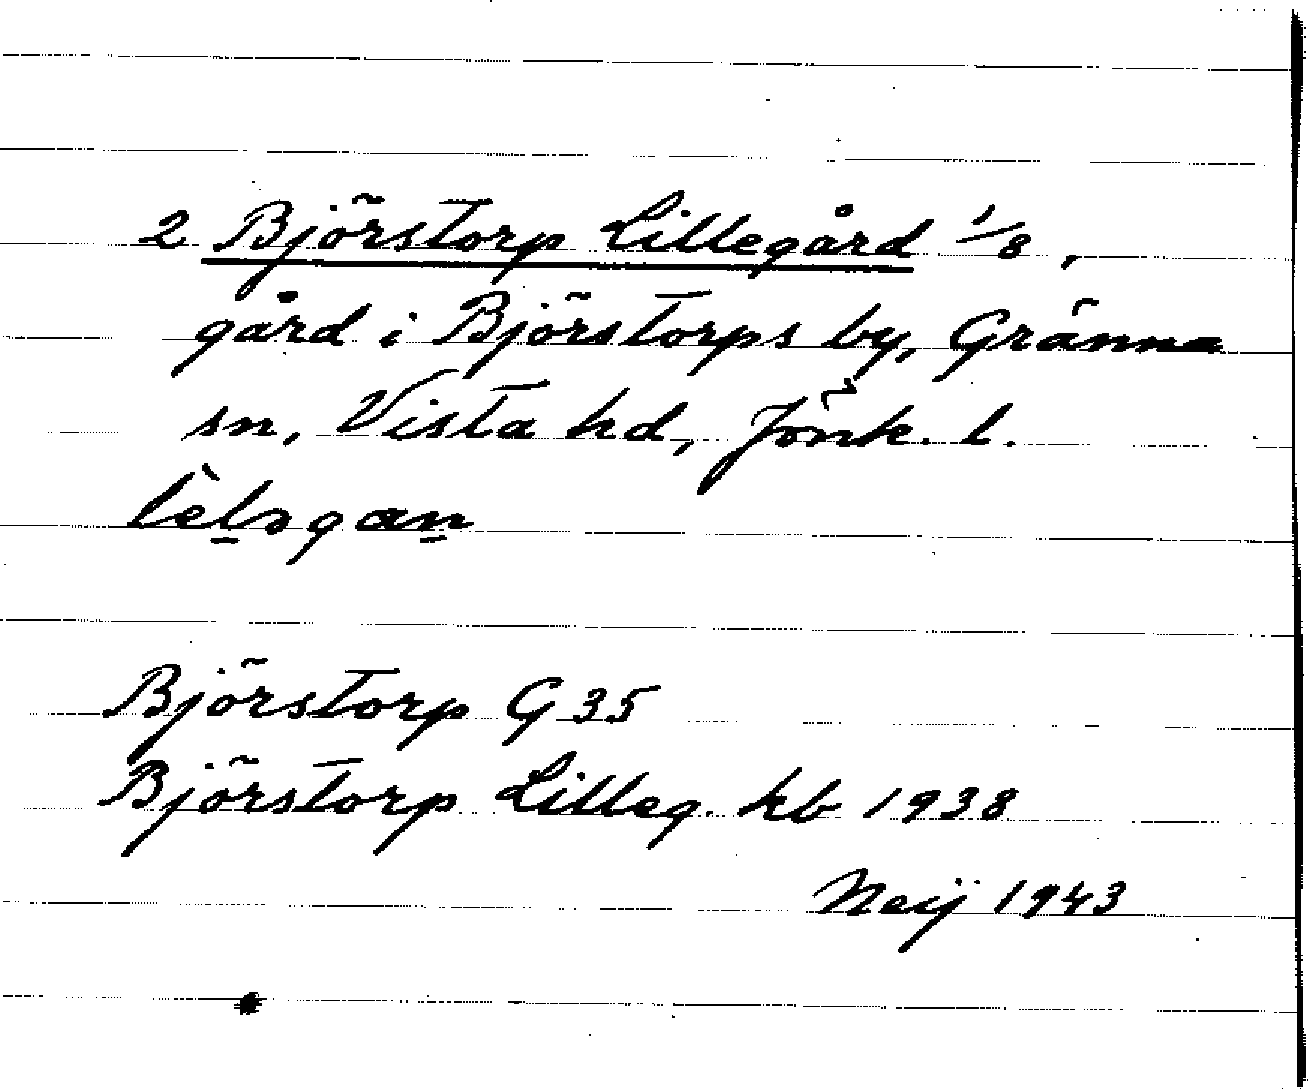 2 Björstorp Lillegård 1/8,
gård i Björstorps by, Gränna
sn, Vista hd, Jönk. l.
Björstorp G 35
Björstorp Lilleg. kb 1938
Neij 1943